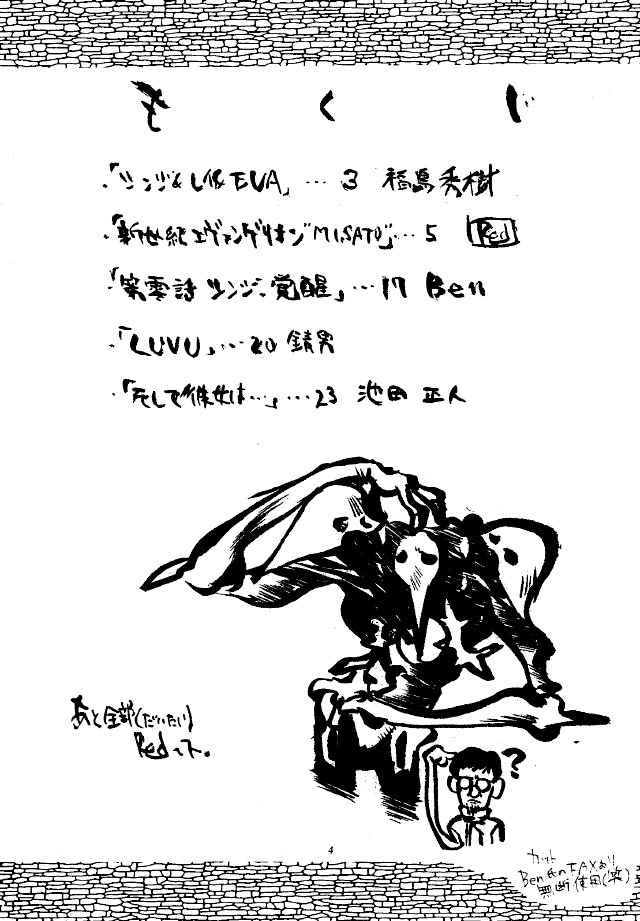 もくじ
・「シンジ&しりとEVA」…3 福島秀樹
・「新世紀エヴァンゲリオン"MISATO"」…5 Red
・「第零話 シンジ、覚醒」…17 Ben
・「LUVU」…20 錆男
・「そして彼女は…」…23 池田正人
あと全部(だいたい)
Redっス。
?
4
カット
Ben氏のFAXより
無断使用(笑)